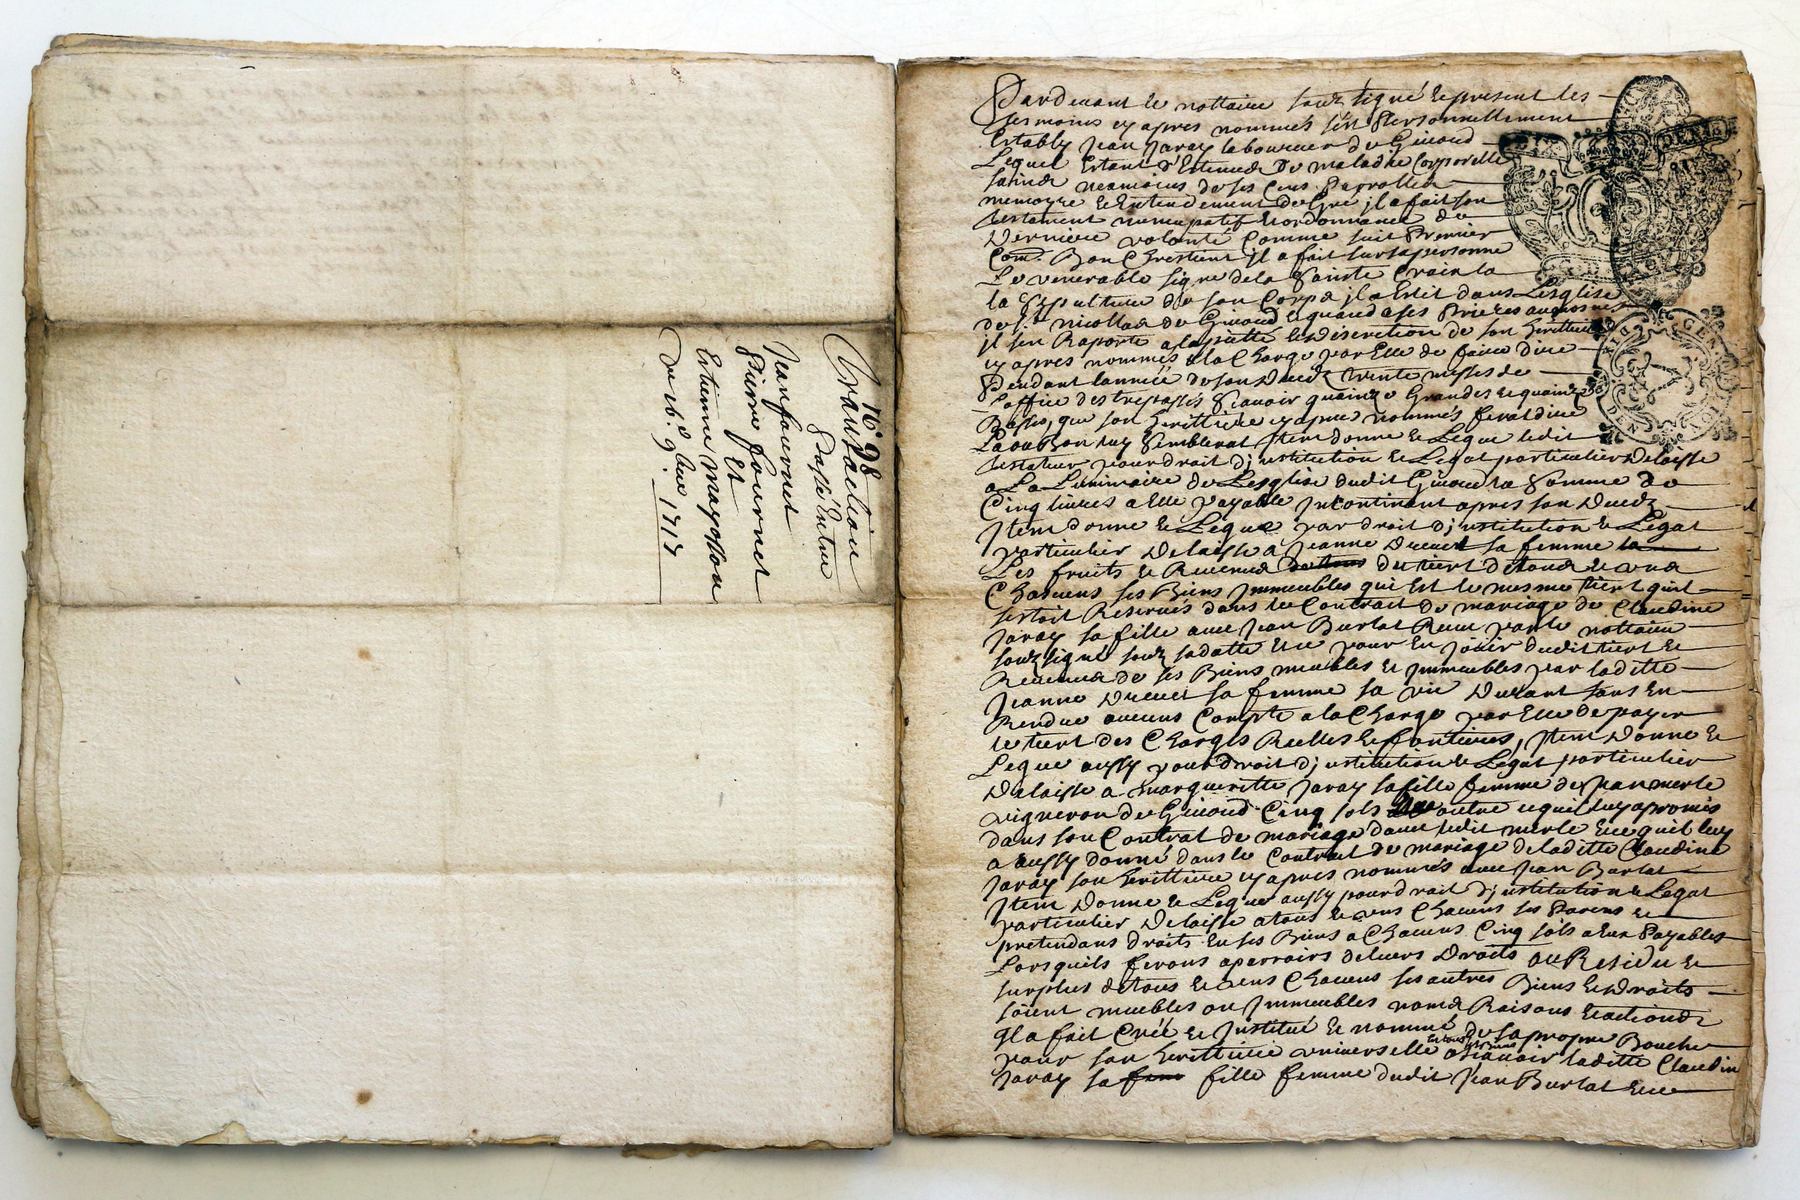 n.º 98
Transaction
Passé Entre
Jean fournet
Pierre fournet
Et
Estienne mayossou
Du 16.e 9.bre 1713
Pardevant le nottaire soubz signé le present les
tesmoins cy apres nommés s'est Personnellement
Estably Jean Jaray laboureur de Givoud
Lequel Estant d'Estenu de maladie Corporelle
saind neamoins de ses Cens Parrolle
memoyre & Entendement de Gre jl a fait son
testament nuncupatif & ordonnance de
Derniere volonté Comme suit Premier
Com.e Bon Chrestient jl a fait sur sa personne
Le venerable signe de la Sainte Croix la
la Sepulture de son Corps jl a Eslit dans Lesglise
de S.t nicollas de Givoud & quand a ses Prieres aumosnes
jl s'en Raporte a la piette & discretion de son herittiere
cy apres nommés a la Charge par Elle de faire dire
Pendant lannéé de son Decedz trente messes de
Loffice des trepassés Scavoir quainze Grandes & quainze
Basses, que son herittiere cy apres nommés fera dire
La ou Bon luy Semblerat Jtem donne & Legue ledit
testateur pour droit dj nstitution & Legat particulier delaisse
a La Luminaire de Lesglise dudit Givoud la Somme de
Cinq livres a Elle payable Jncontinant apres son Decedz
Jtem donne & Legue par droit dj nstitution & Legat
particulier delaisse a Jeanne Drevet sa femme la
Les fruits & Revenus du tiert de tous & uns
Chacuns ses Biens Jmmeubles qui est le mesme tiert quil
sestoit Reservés dans le Contrait de mariage de Claudine
Jaray sa fille avec Jean Burlat Receu par le nottaire
soubz signé soubz sa datte & ce pour En joüir dudit tiert &
Revenus de ses Biens meubles & Jmmeubles par laditte
Jeanne Drevet sa femme sa vie Durant sans En
Rendue aucuns Compte a la Charge par Elle de payer
le tiert des Charges Reelles & fontieres, Jtem Donne &
Legue aussy pour droit dj nstitution & Legat particulier
Delaisse a margueritte Jaray sa fille femme de Jean merle
vigneron de Givoud Cinq sols outre ce quil luy a promis
dans son Contrat de mariage d'avec ledit merle & ce quil luy
a aussy donné dans le Contrat de mariage de laditte Claudine
Jaray son herittiere cy apres nommés avec Jean Burlat
Jtem Donne & Legue aussy pour droit dj nstitution & Legat
particulier Delaisse a tous & uns Chacuns ses Parens &
pretendans droits En ses Biens a Chacuns Cinq sols a Eux Payables
Lorsquils feront aparroirs de leurs Droits au Residu &
surplus de tous & uns Chacuns ses autres Biens & Droits
soient meubles ou Jmmeubles noms Raisons & actionds
Jl a fait Créé & Jnstitué & nommé de sa propre Bouche
pour son herittiere universelle a Scavoir laditte Claudin
Jaray sa fem fille femme dudit Jean Burlat & ce